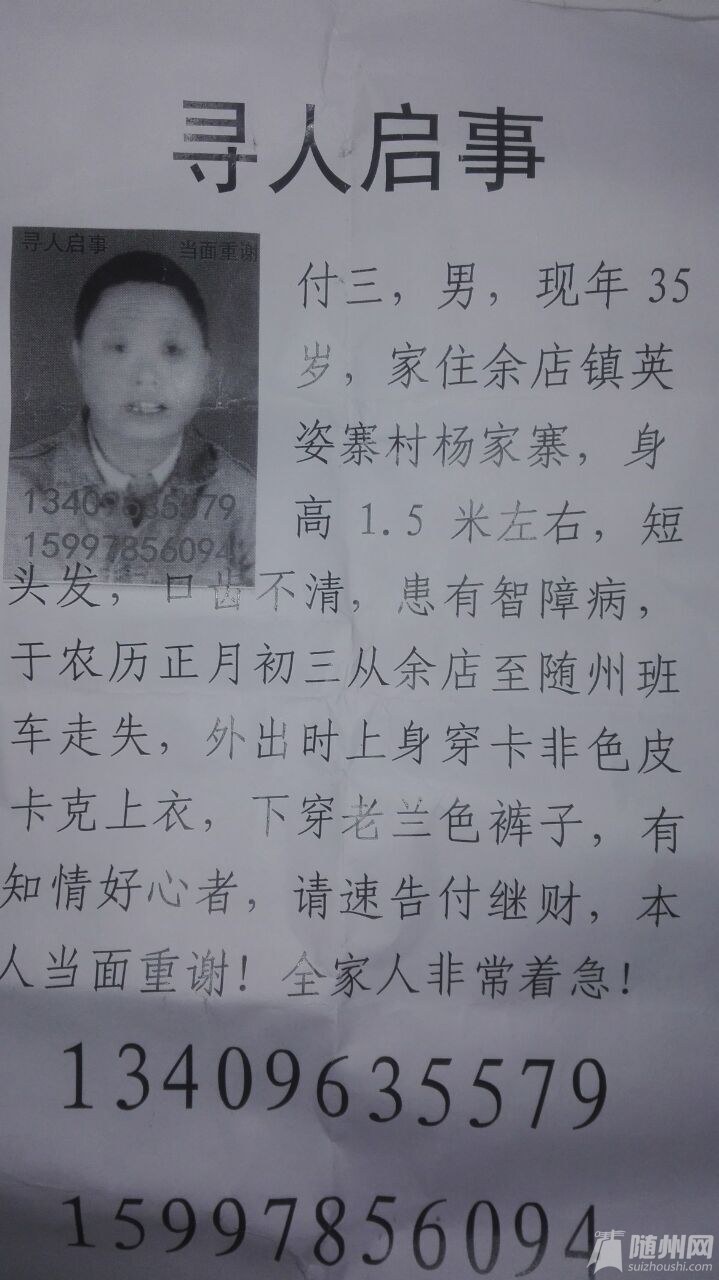 寻人启事
寻人启事 当面重谢
13409635579
15997856094
付三，男，现年 35
岁，家住余店镇英
姿寨村杨家寨，身
高 1.5 米左右，短
头发，口齿不清，患有智障病，
于农历正月初三从余店至随州班
车走失，外出时上身穿卡非色皮
卡克上衣，下穿老兰色裤子，有
知情好心者，请速告付继财，本
人当面重谢！全家人非常着急！
13409635579
15997856094
随州网
suizhoushi.com